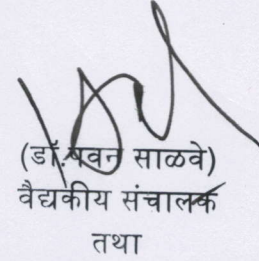 (डॉ.पवन साळवे)
वैद्यकीय संचालक
तथा